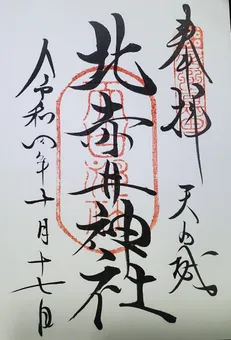 奉拝
天乃城
北赤井神社
令和四年十月十七日